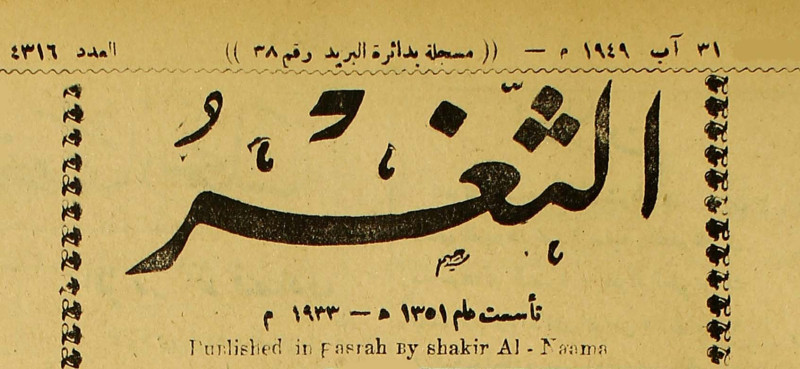 ٣١ آب ١٩٤٩ م — (( مسجلة بدائرة البريد رقم ٣٨ )) العدد ٤٣١٦
الثغر
تأسست عام ١٣٥١ ه — ١٩٣٣ م
Published in Basrah By shakir Al - Naama